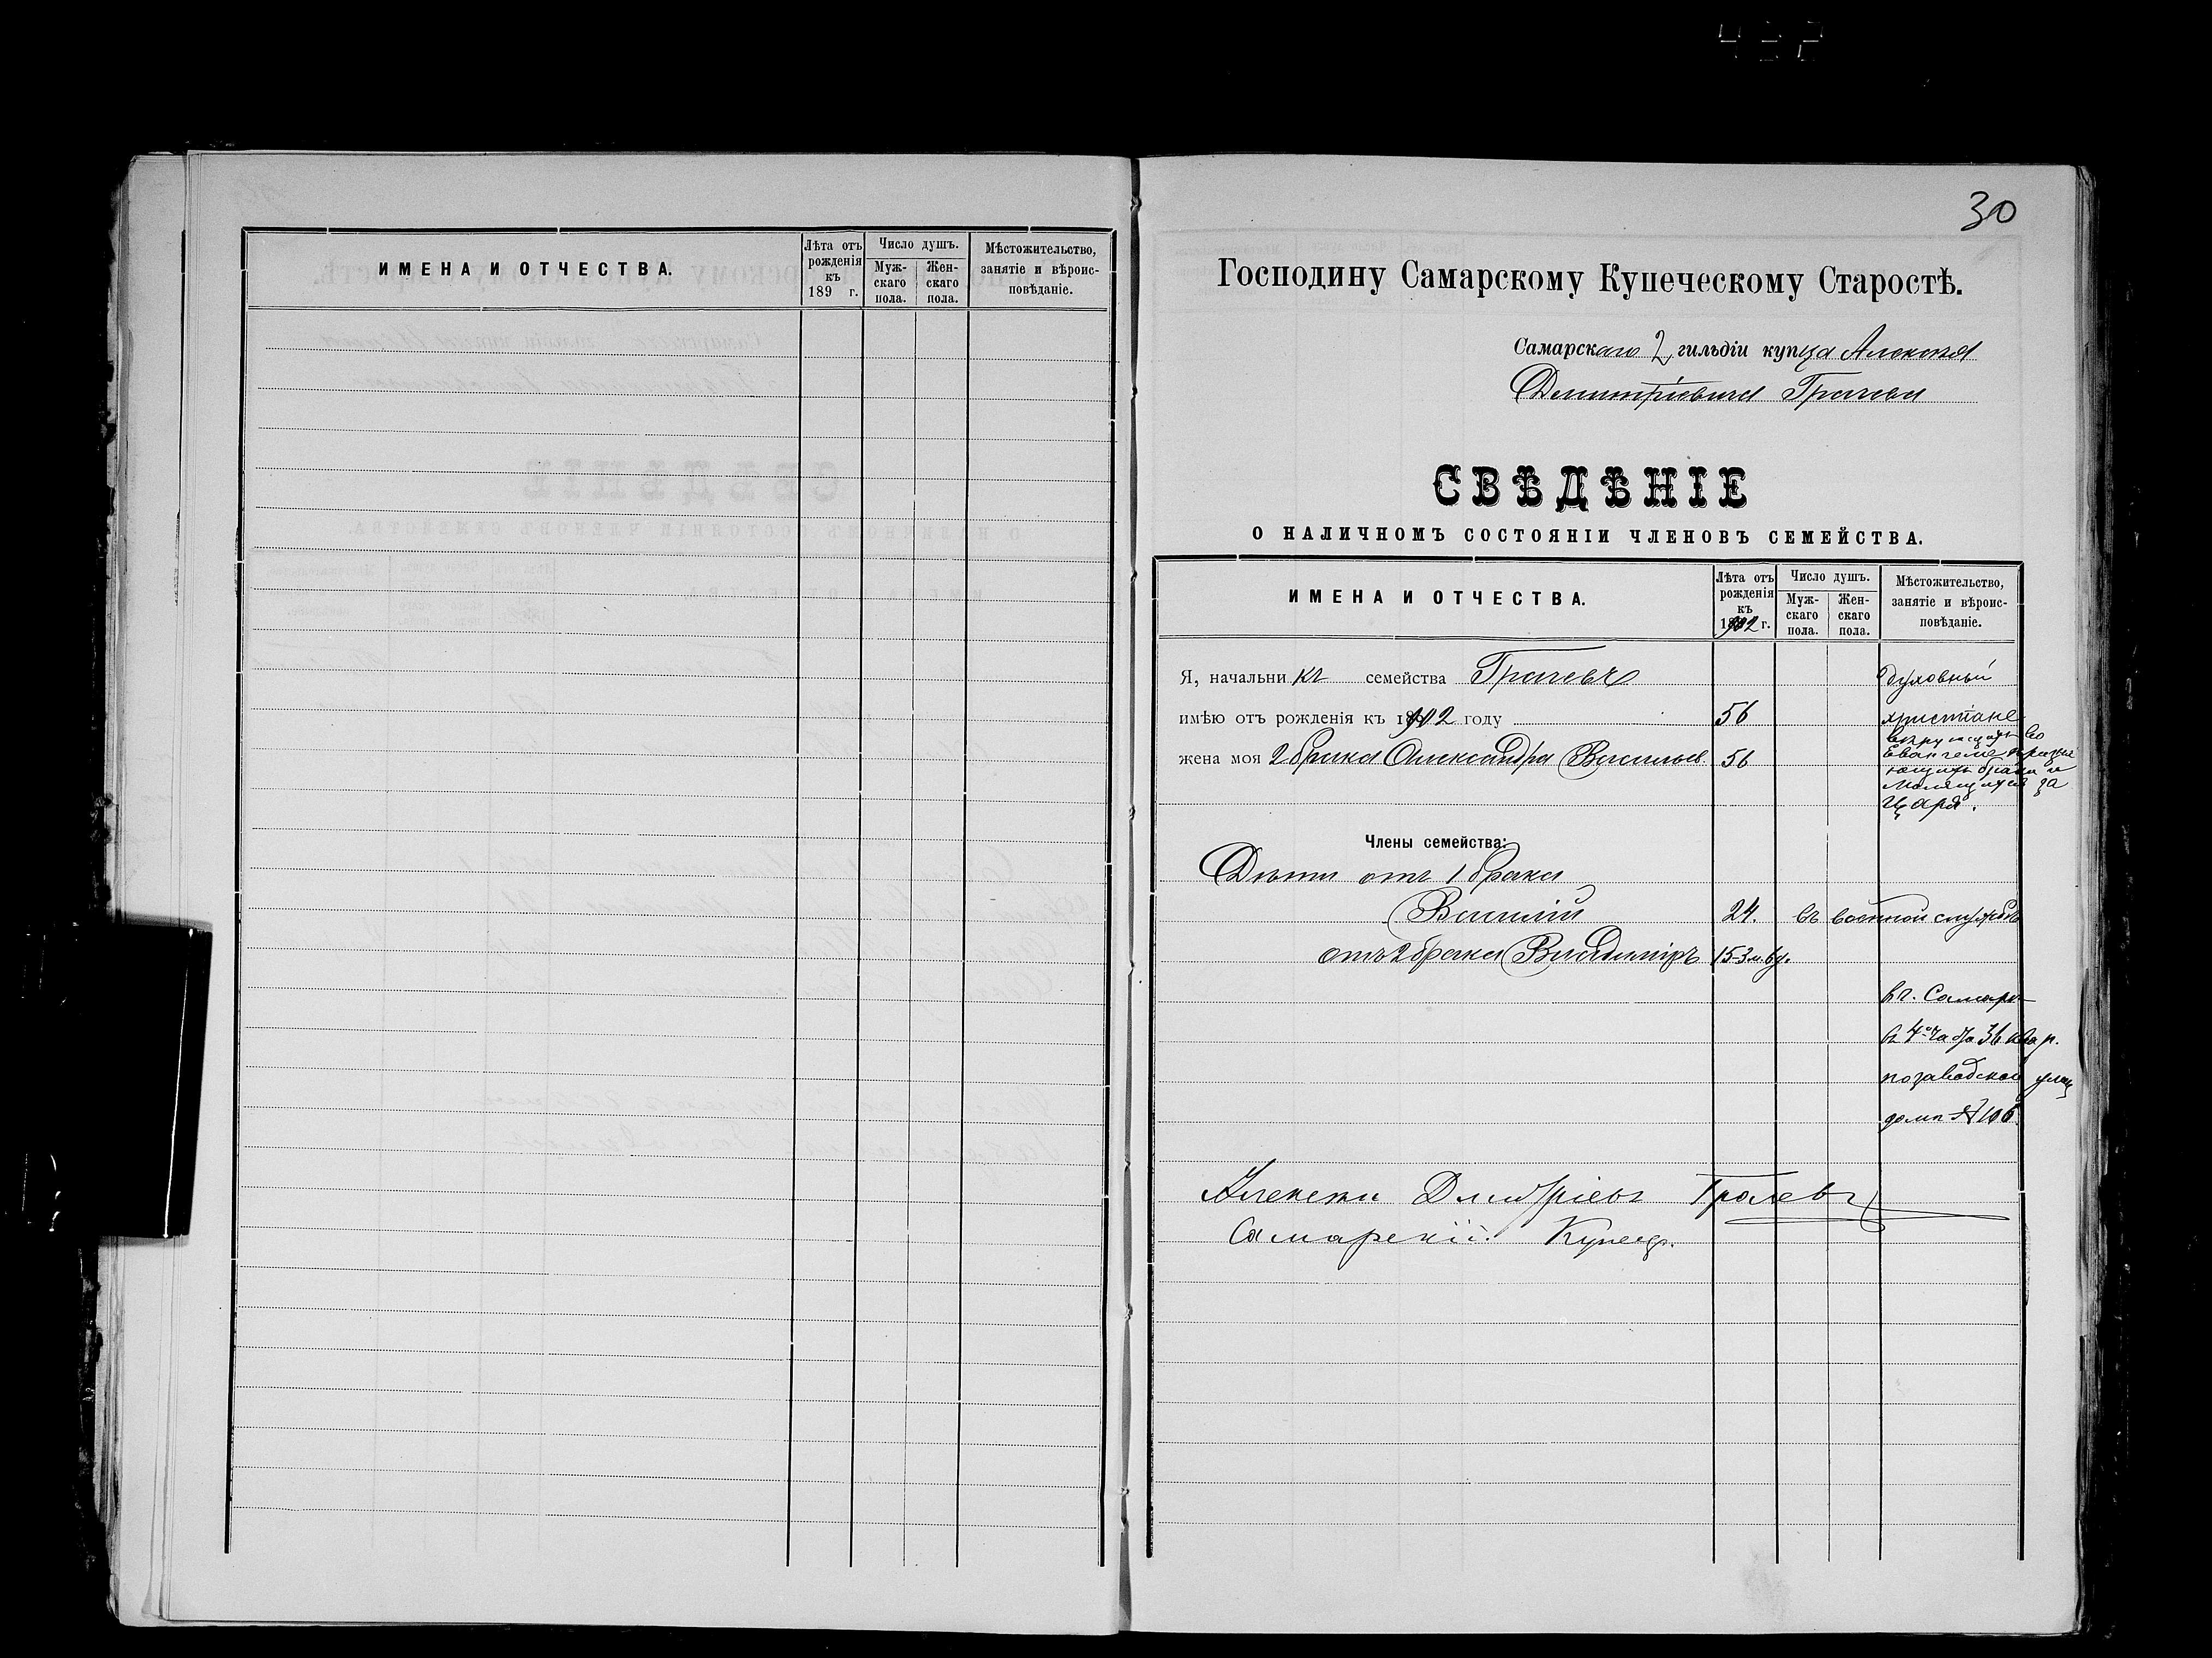 ИМЕНА И ОТЧЕСТВА.
Лѣта отъ рожденія къ 189 г.
Число душъ.
Муж-скаго пола.
Жен-скаго пола.
Мѣстожительство, занятіе и вѣроис-повѣданіе.
30
Господину Самарскому Купеческому Старостѣ.
Самарскаго 2 гильдіи купца Алексѣя
Димитріевича Грачева
СВѢДѢНІЕ
О НАЛИЧНОМЪ СОСТОЯНІИ ЧЛЕНОВЪ СЕМЕЙСТВА.
ИМЕНА И ОТЧЕСТВА.
Лѣта отъ рожденія къ 1902 г.
Число душъ.
Муж-скаго пола.
Жен-скаго пола.
Мѣстожительство, занятіе и вѣроис-повѣданіе.
Я, начальникъ семейства Грачевъ
духовный
имѣю отъ рожденія къ 1902 году 56
христіане
жена моя 2 брака Александра Васильев. 56
вѣрующихъ во
Евангеліе
браки и
молящихся за
Царя.
Члены семейства:
Дѣти отъ 1 брака
Василій 24. въ военной службѣ
отъ 2 брака Владиміръ 15
в г. Самарѣ
в 4й части 36 квар.
по заводской улиц
домъ № 106
Алексѣй Дмитріевъ Грачевъ
Самарскій Купецъ.